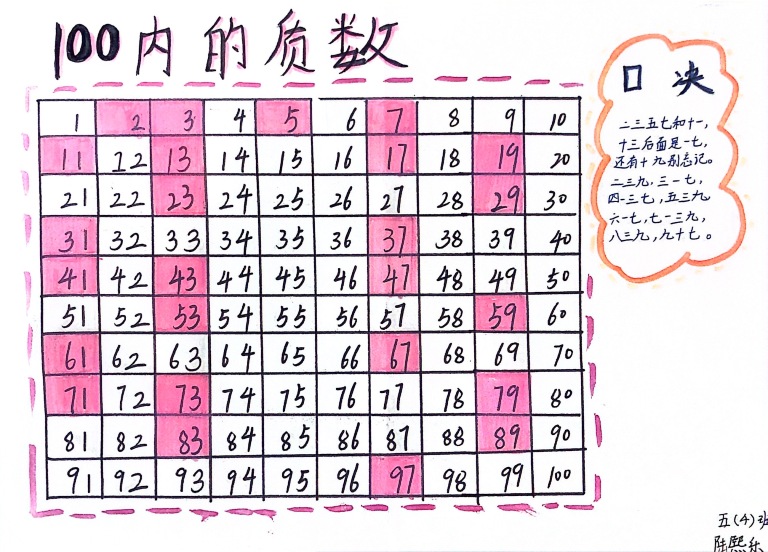 100内的质数
1 2 3 4 5 6 7 8 9 10
11 12 13 14 15 16 17 18 19 20
21 22 23 24 25 26 27 28 29 30
31 32 33 34 35 36 37 38 39 40
41 42 43 44 45 46 47 48 49 50
51 52 53 54 55 56 57 58 59 60
61 62 63 64 65 66 67 68 69 70
71 72 73 74 75 76 77 78 79 80
81 82 83 84 85 86 87 88 89 90
91 92 93 94 95 96 97 98 99 100
口决
二三五七和十一,
十三后面是一七,
还有十九别忘记。
二三九,三一七,
四一三七,五三九
六一七,七一三九,
八三九,九十七。
五(4)班
陆熙乐